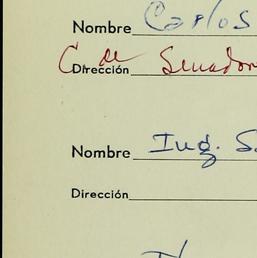 Nombre Carlos
Dirección C. de Senadores
Nombre Ing. S
Dirección